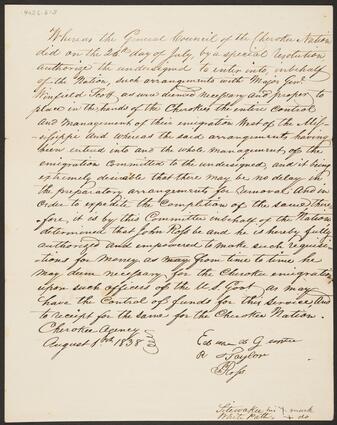 4026.613
Whereas the General Council of the Cherokee Nation
did on the 26th day of July, by a special resolution
authorize the undersigned to enter into, in behalf
of the Nation, such arrangements with Major Genl.
Winfield Scott, as were deemed necessary and proper to
place in the hands of the Cherokees the entire Control
and Management of their emigration West of the Mis-
sissippi And whereas the said arrangements having
been entered into and the whole management, of the
emigration Committed to the undersigned, and it being
extremely desirable that there may be no delay in
the preparatory arrangements for removal. And in
order to expedite the Completion of the same, There-
fore, it is by this Committee in behalf of the Nation
determined that John Ross be and he is hereby fully
authorized and empowered to make such requisi-
tions for Money as may from time to time he
may deem necessary for the Cherokee emigration
upon such officers of the U.S. Govt. as may
have the Control of funds for this service, And
to receipt for the same for the Cherokee Nation.
Cherokee Agency
August 1838
Edward Gunter
R Taylor
Ross
Sitewakee his + mark
White Path + do.